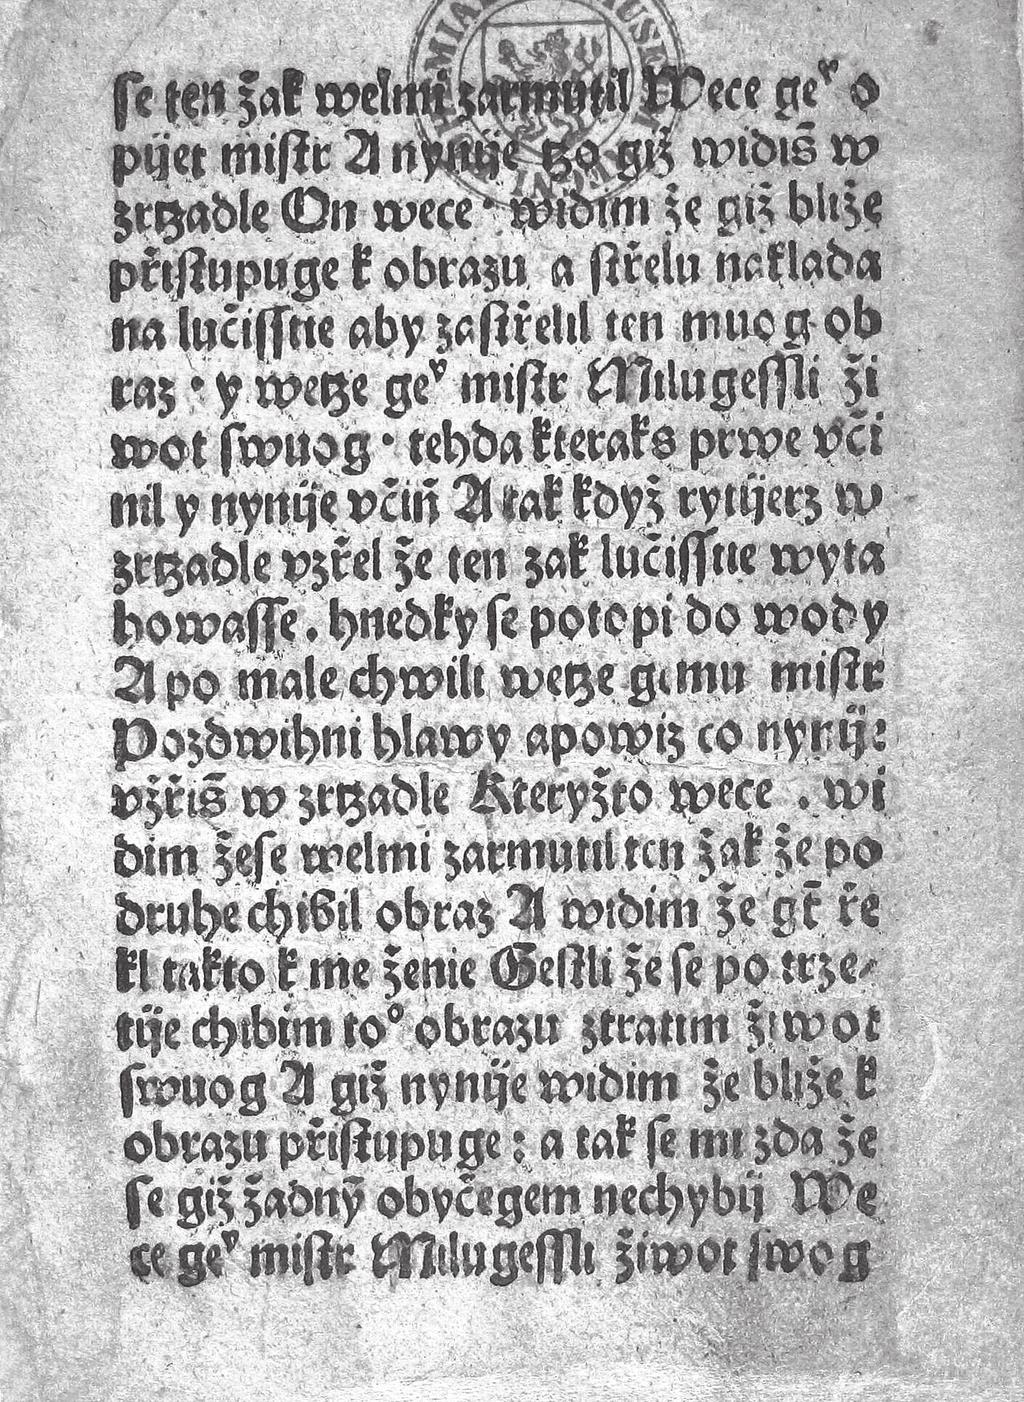 se ten žak welmi zarmutil Wece geͮ o
pijet miſtr A nynije tzo giž widiš w
zrtzadle On wece · widim že giž bliže
přiſtupuge k obrazu a ſtřelu naklada
na lučiſſtie aby zaſtřelil ten muog ob
raz : y wetze geͮ miſtr Milugeſſli ži
wot ſwuog · tehda kteraks prwe vči
nil y nynije včiň A tak když rytijerz w
zrtzadle vzřel že ten zak lučiſſtie wyta
howaſſe . hnedky ſe potopi do wody
A po male chwili wetze gemu miſtr
Pozdwihni hlawy apowiz co nynij:
vžřiš w zrtzadle Kteryžto wece . wi
dim žeſe welmi zarmutil ten žak že po
druhe chibil obraz A widim že gt̄ ře
kl takto k me ženie Geſtli že ſe po trze⸗
tije chibim toº obrazu ztratim život
ſwuog A giž nynije widim že bliže k
obrazu přiſtupuge : a tak ſe mi zda že
ſe giž žadnȳ obyčegem nechybij We
ce geͮ miſtr Milugeſſli žiwot ſwog